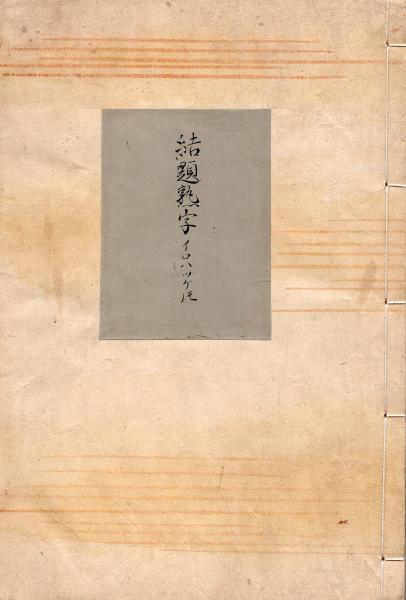 結題熟字イロハツケ